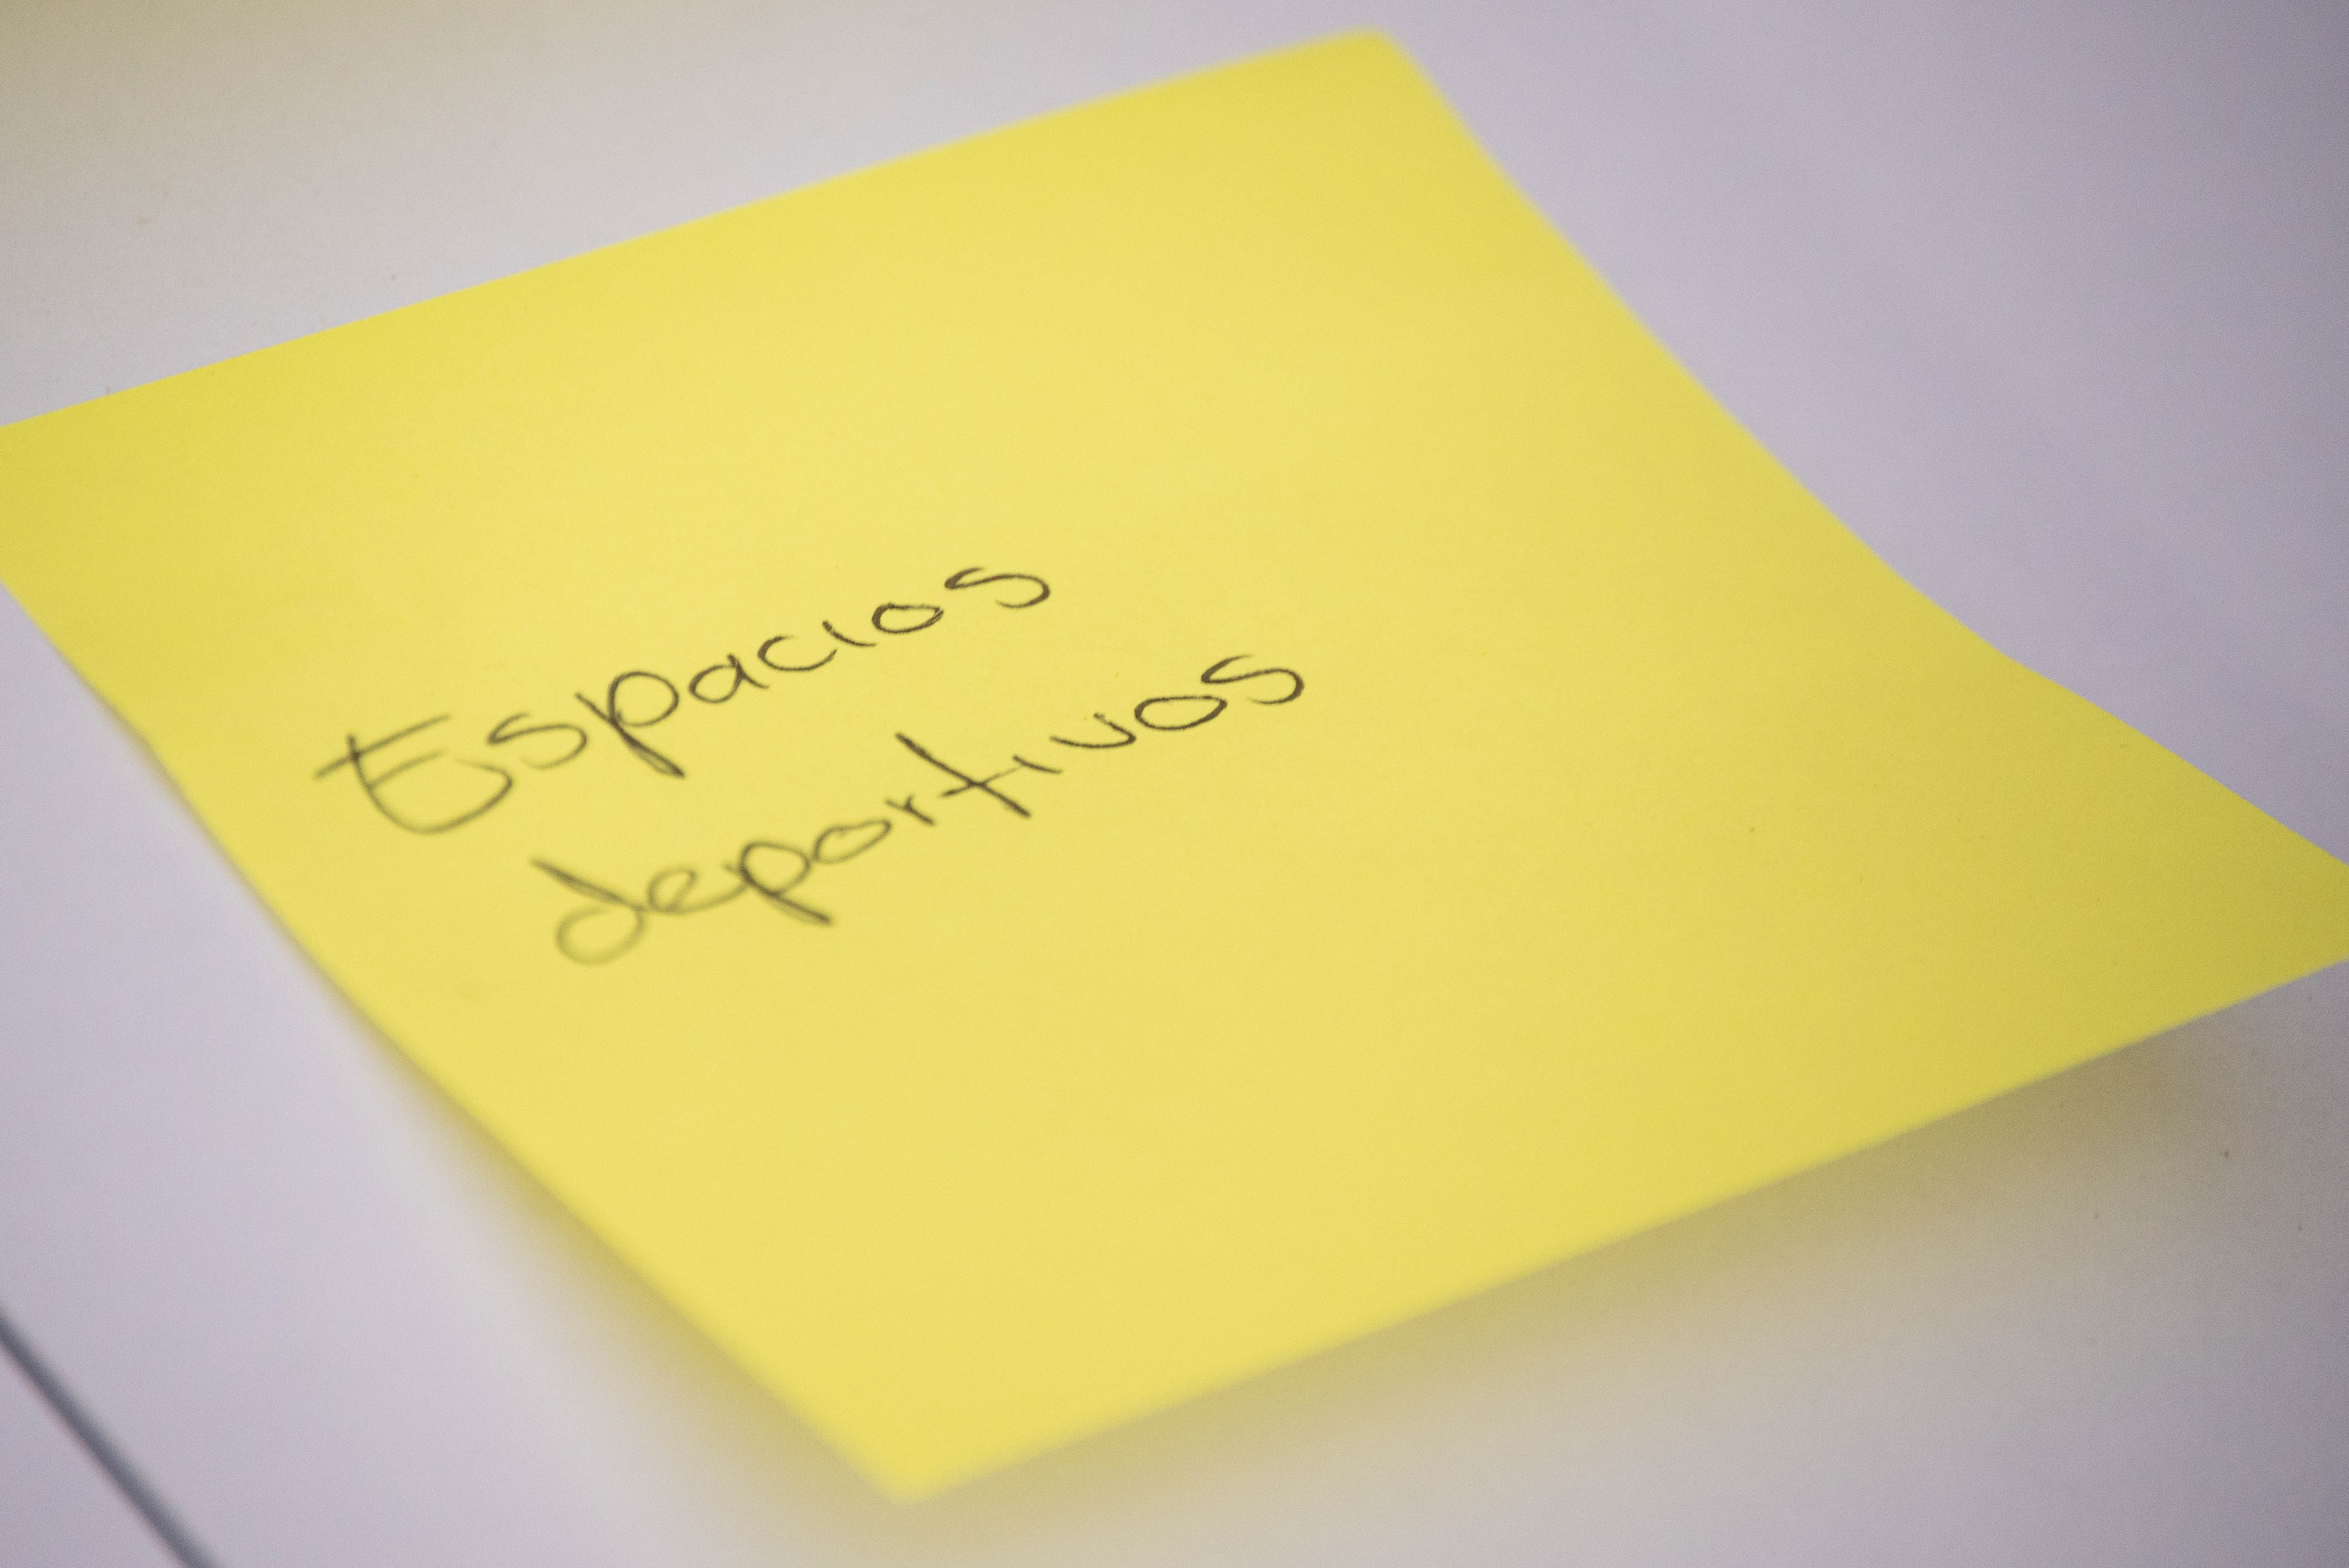 Espacios
deportivos